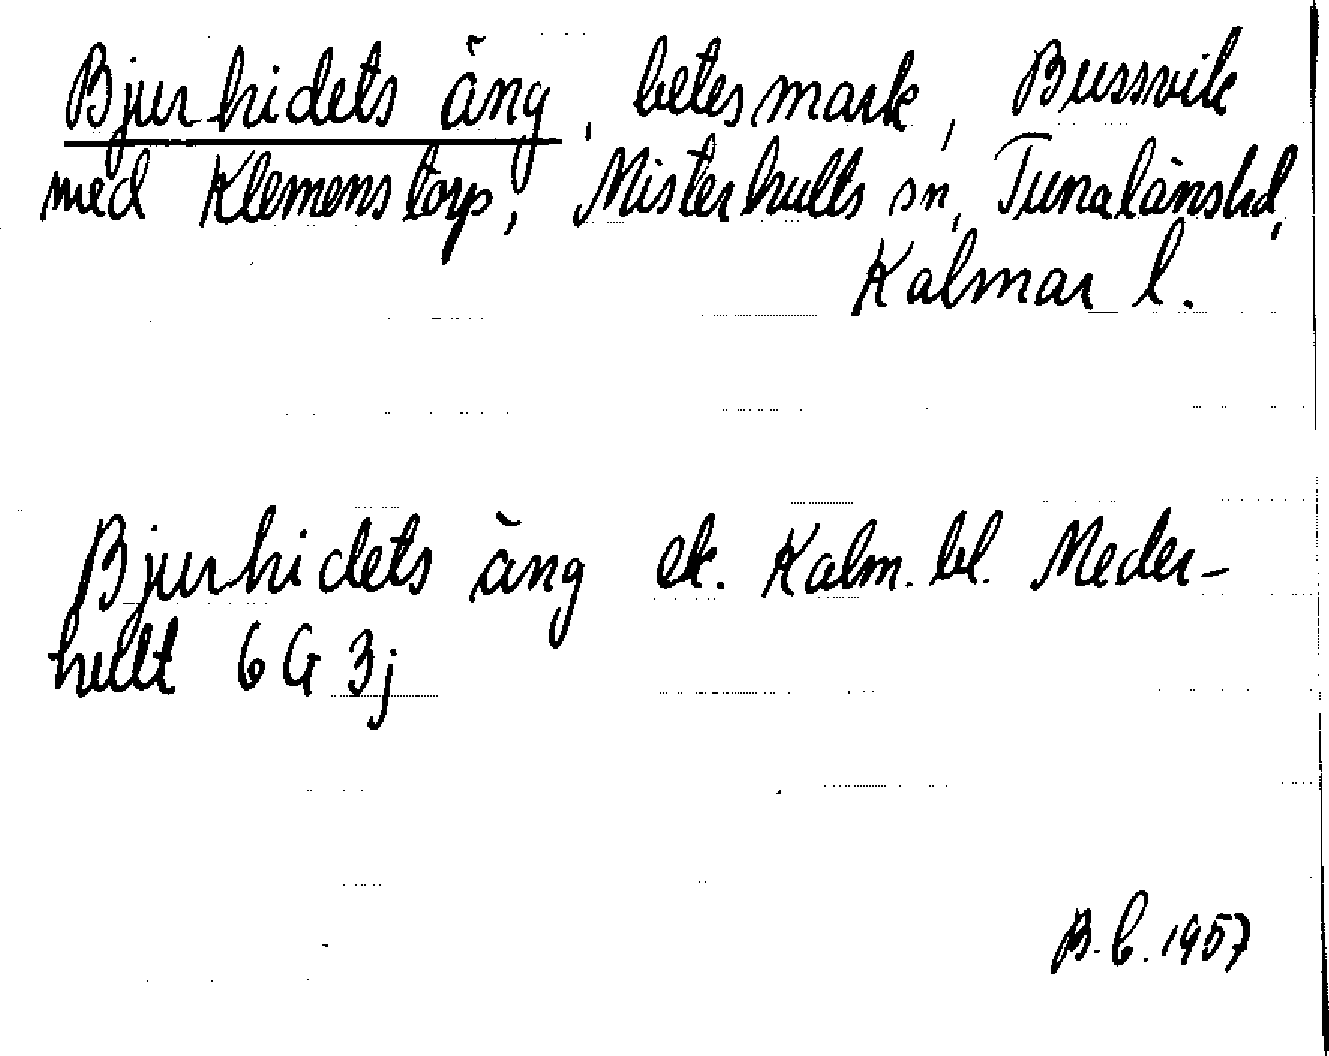 Bjurhidets äng, betesmark, Bussvik
med Klemenstorp, Misterhults sn, Tunalänshd,
Kalmar l.
Bjurhidets äng ek. Kalm. bl. Meder-
hult 6G 3j
B.b. 1957